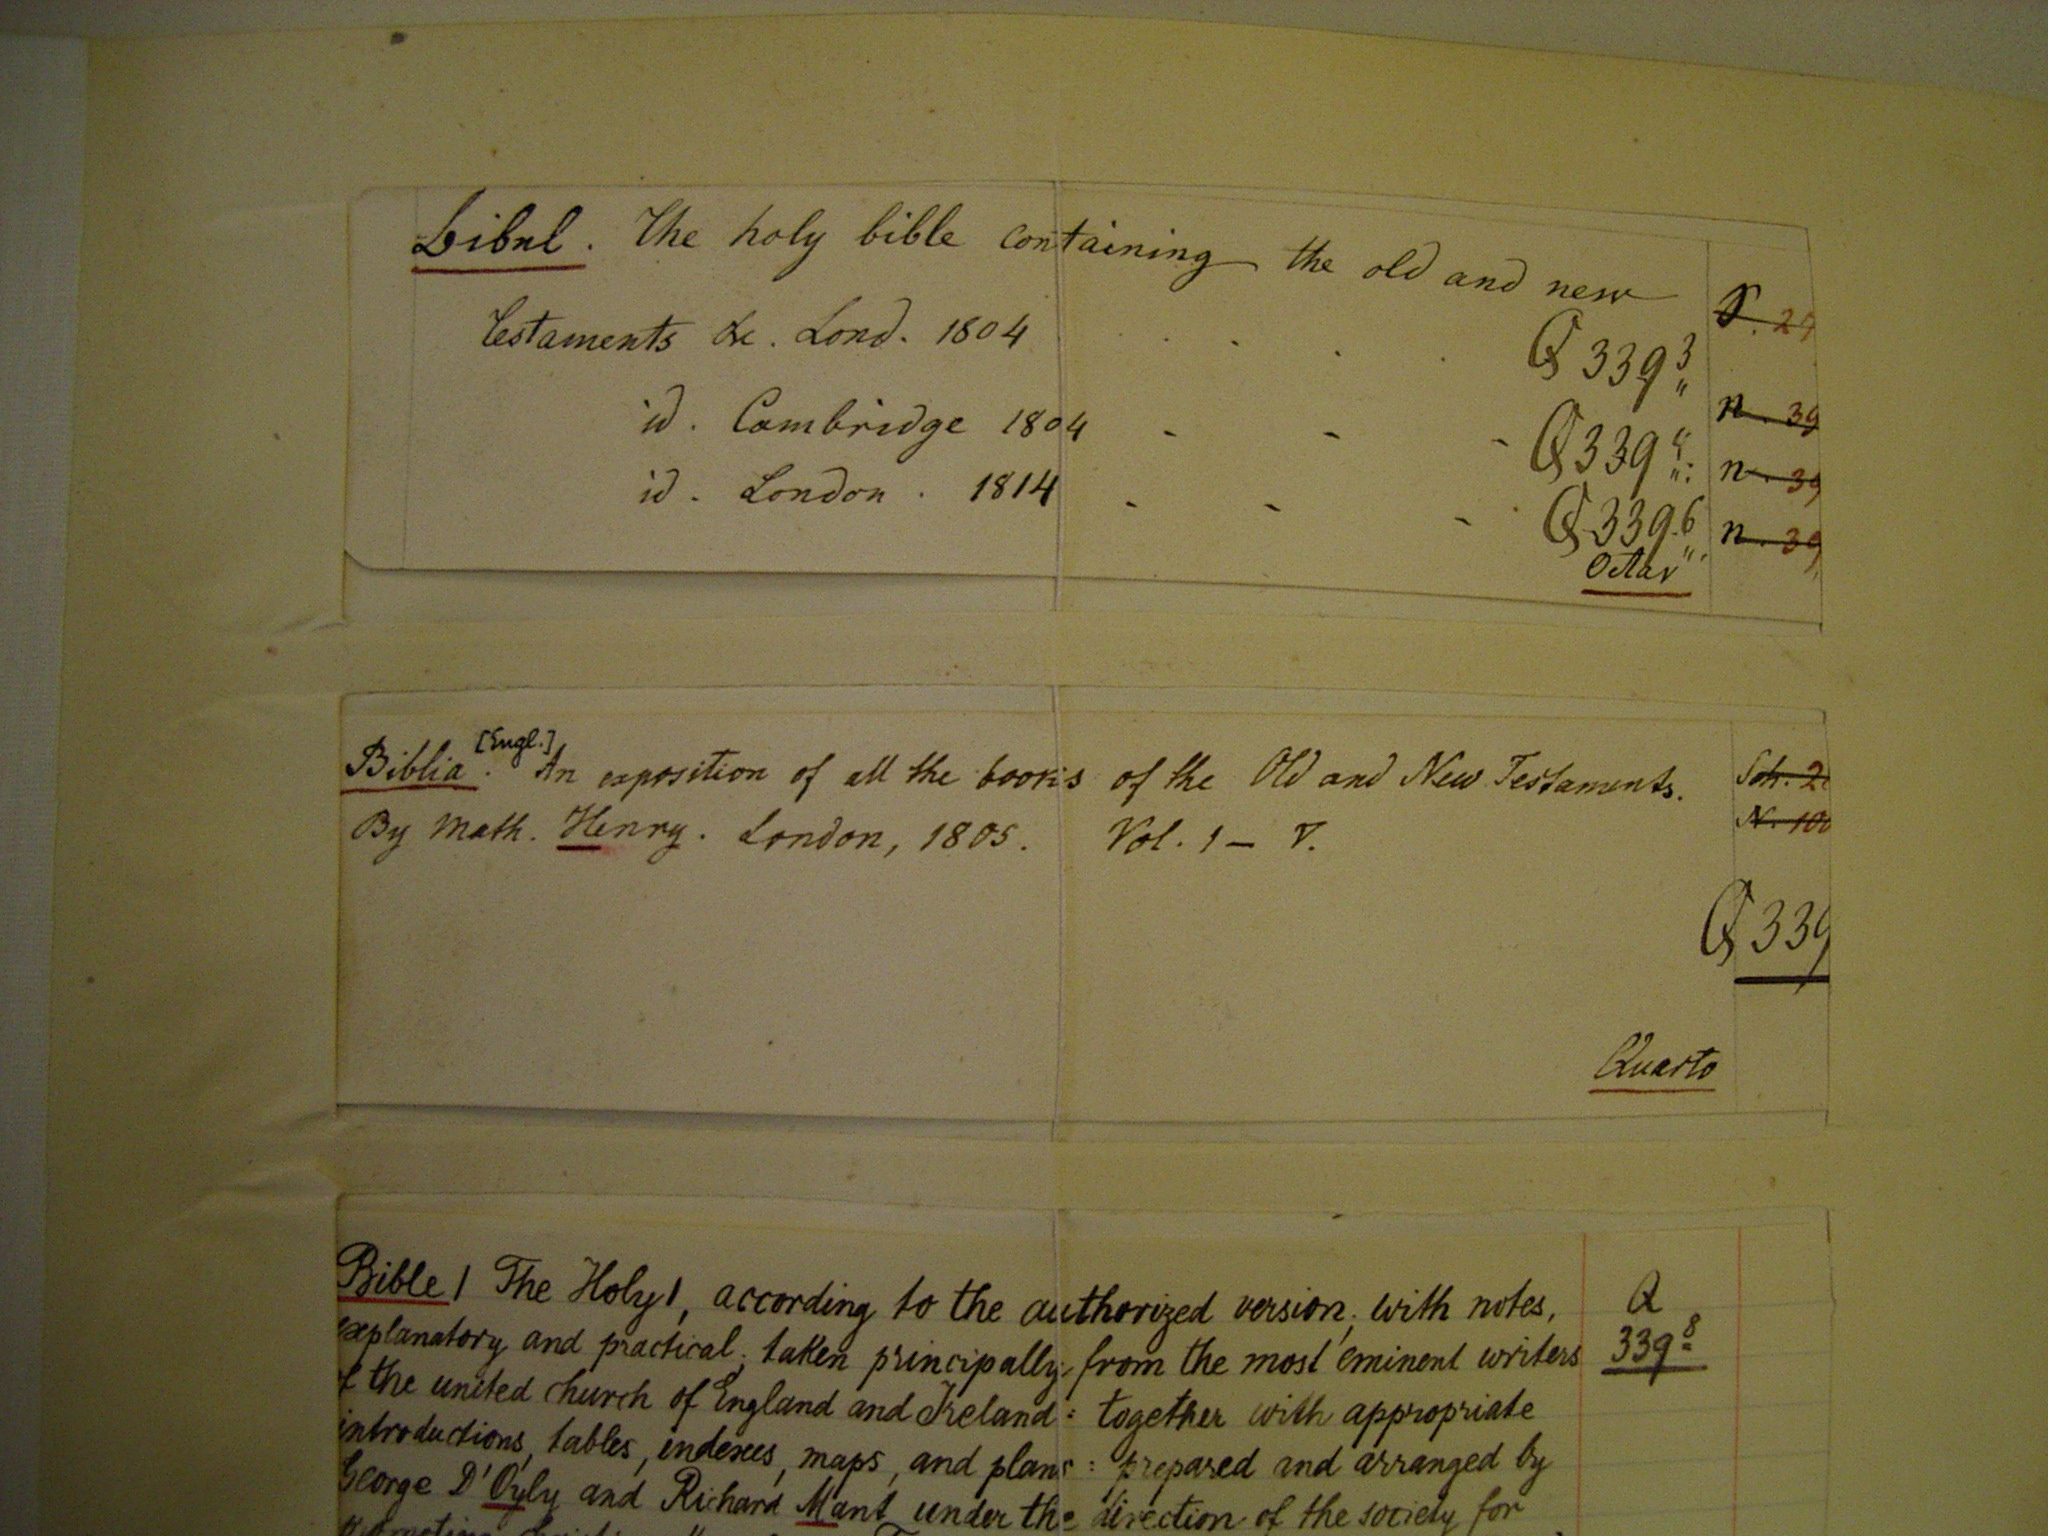 Bibel. The holy bible containing the old and new
Testaments &c. Lond. 1804 . . . . Q 339 3
id. Cambridge 1804 - - - Q 339
id. London. 1814 - - - Q 339.6
Octav
n. 39
n. 39
n. 39
Biblia. [Engl.] An exposition of all the books of the Old and New Testaments.
By Math. Henry. London, 1805. Vol. 1 – V.
N. 100
Q 339
Quarto
Bible / The Holy /, according to the authorized version; with notes,
explanatory and practical; taken principally from the most eminent writers
of the united church of England and Ireland: together with appropriate
introductions, tables, indexes, maps, and plans: prepared and arranged by
George D'Oyly and Richard Mant under the direction of the society for
Q
339 8